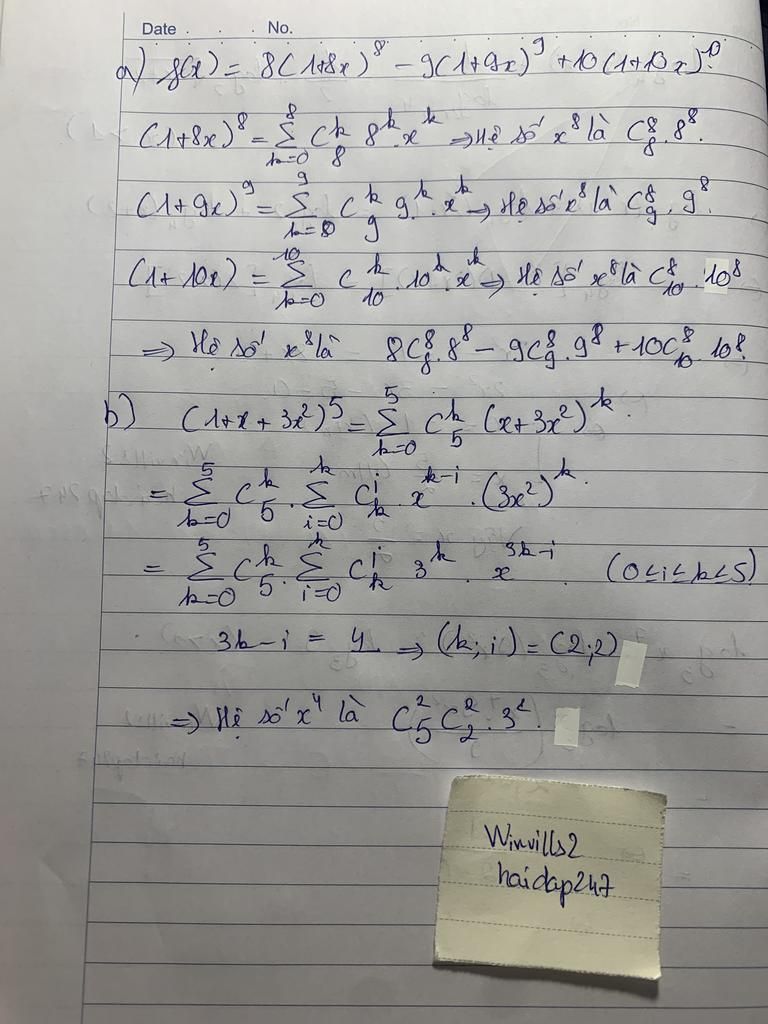 Date . . . No.
a) f(x) = 8(1+8x)^8 - 9(1+9x)^9 + 10(1+10x)^10.
(1+8x)^8 = \sum_{k=0}^{8} C_8^k 8^k . x^k => Hệ số x^8 là C_8^8 . 8^8.
(1+9x)^9 = \sum_{k=0}^{9} C_9^k 9^k . x^k => Hệ số x^8 là C_9^8 . 9^8.
(1+10x) = \sum_{k=0}^{10} C_{10}^k . 10^k . x^k => Hệ số x^8 là C_{10}^8 . 10^8
=> Hệ số x^8 là 8C_8^8 . 8^8 - 9C_9^8 . 9^8 + 10C_{10}^8 . 10^8.
b) (1+x+3x^2)^5 = \sum_{k=0}^{5} C_5^k (x+3x^2)^k.
= \sum_{k=0}^{5} C_5^k . \sum_{i=0}^{k} C_k^i . x^{k-i} . (3x^2)^k.
= \sum_{k=0}^{5} C_5^k . \sum_{i=0}^{k} C_k^i 3^k . x^{3k-i} . (0≤i≤k≤5)
3k-i = 4 => (k; i) = (2;2)
=> Hệ số x^4 là C_5^2 C_2^2 . 3^2.
Winvills2
haidap247